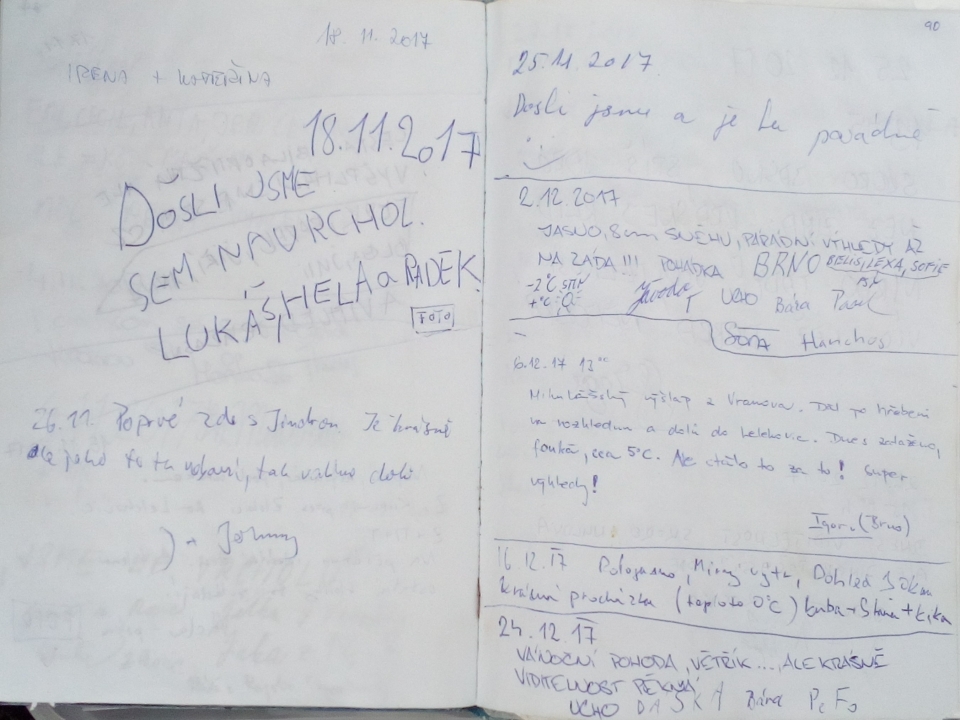 18.11.2017
IRENA + KATEŘINA
18.11.2017
DOŠLI JSME
SEM NA VRCHOL.
LUKÁŠ, HELA a RADĚK
FOTO
26.11. Poprvé zde s Jindrou. Je krásně
ale jako to tu nebaví, tak valíme dolů
J + Johnny
90
25.11.2017
Došli jsme a je tu parádně
2.12.2017
JASNO, 8cm SNĚHU, PARÁDNÍ VÝHLEDY AŽ
NA ZÁDA!!! POHÁDKA BRNO BELIS, LEXA, SOFIE
-2°C STÍN
+ °C Jarda UCHO Bára Pavel
SOŇA Hanchos
6.12.17 13
Mikulášský výšlap z Vranova. Dál po hřebeni
na rozhlednu a dolů do Lelekovic. Dnes zataženo,
fouká, cca 5°C. Ale stálo to za to! Super
výhledy!
Igor. (Brno)
16.12.17 Polojasno, Mírný vítr, Dohled 30km
krásná procházka (teplota 0°C) Kuba + Stáňa + Kika
24.12.17
VÁNOČNÍ POHODA, VĚTŘÍK..., ALE KRÁSNĚ
VIDITELNOST PĚKNÁ
UCHO Bára